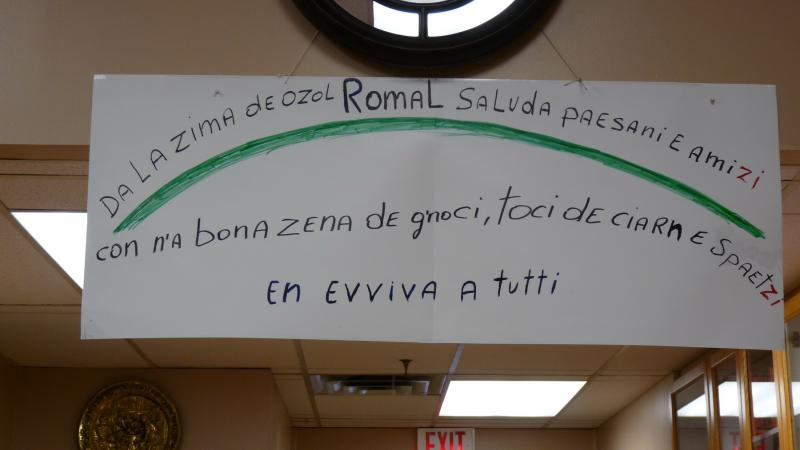 DA LA ZIMA de OZOL ROMAL SALUdA PAESANi E AMiZi
con n'A bonA ZENA de gnoci, toci dE CiARn E SPAEtZi
En EVViVA A tutti
EXIT